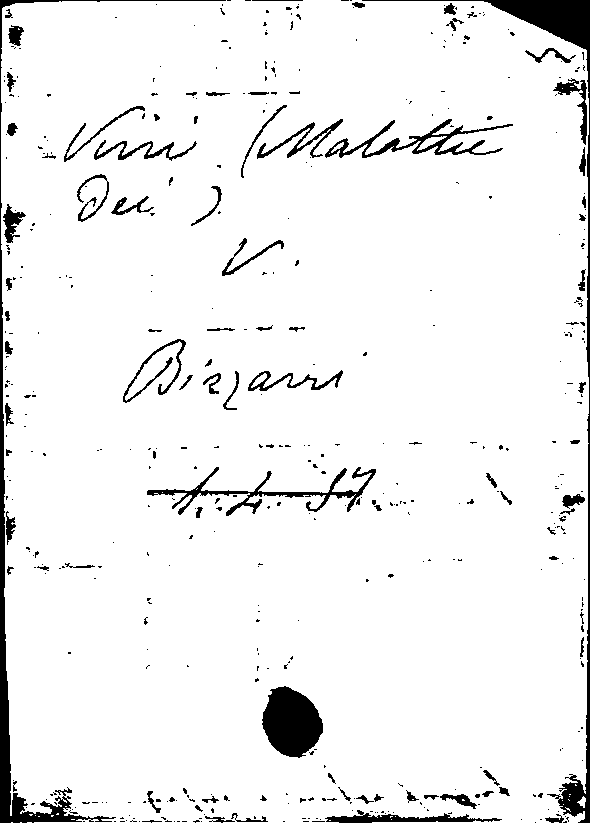 Vini (Malattie
Dei)
V.
Bizzarri
1. L. 57